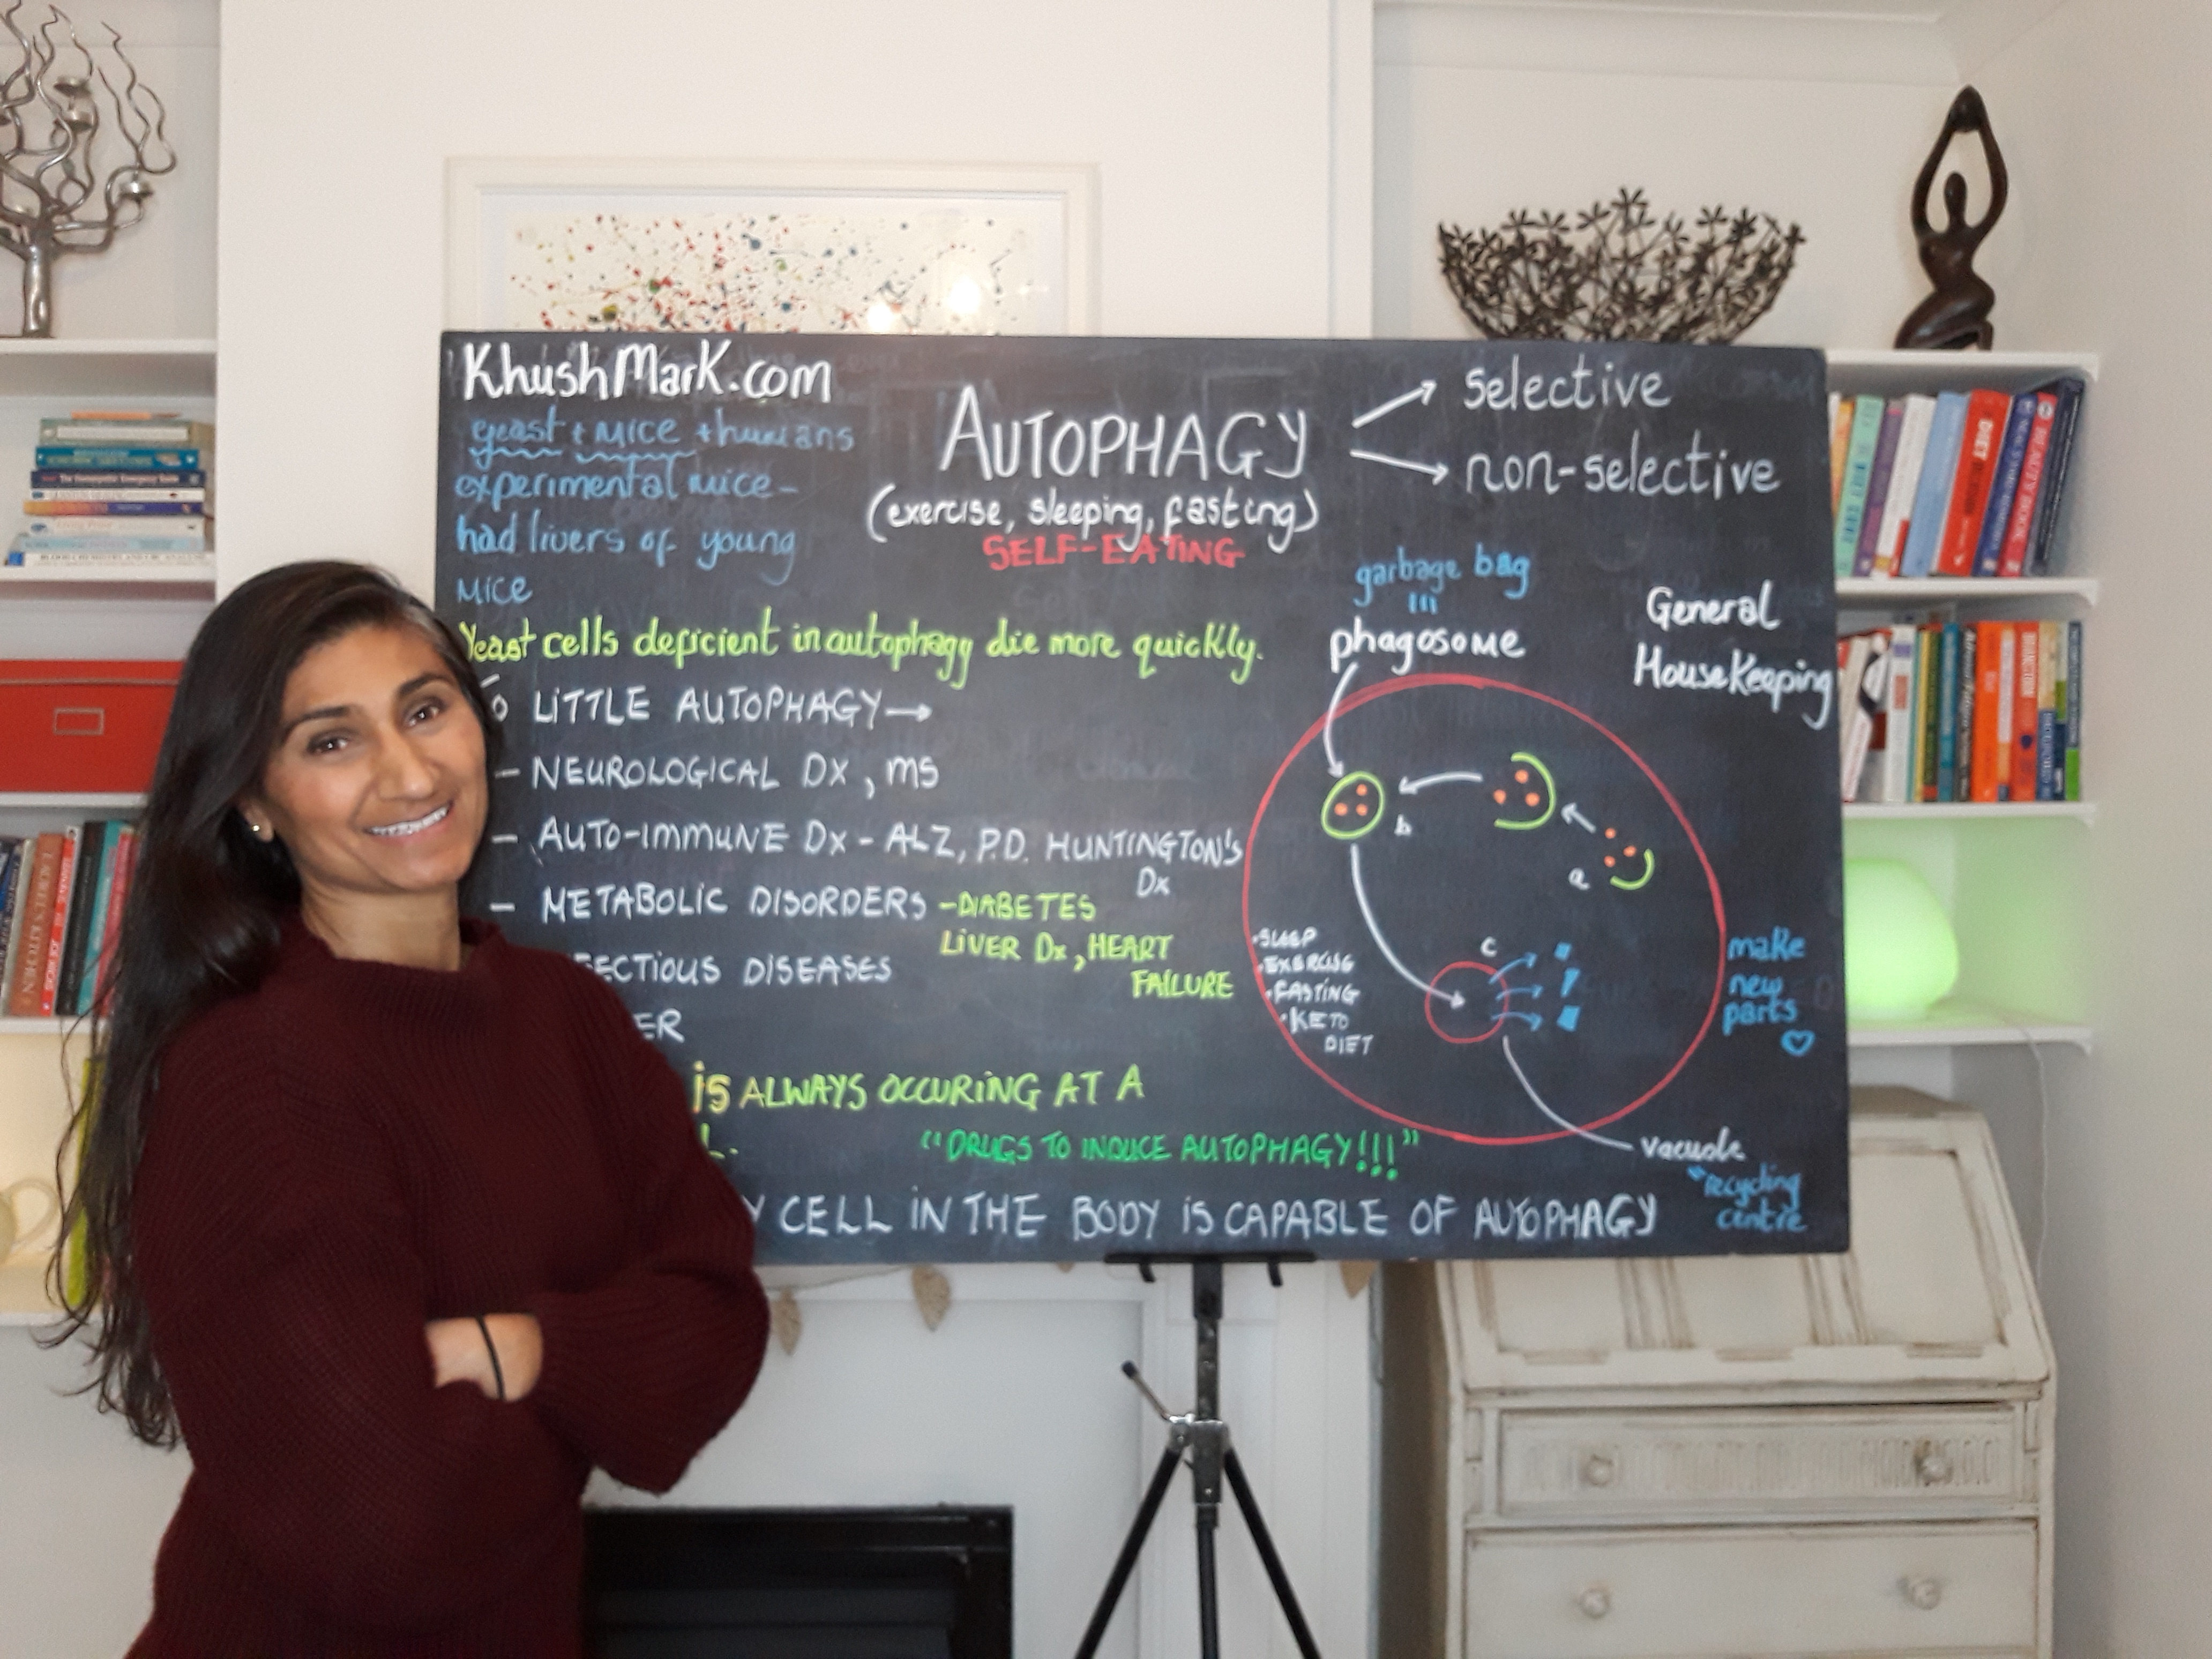 KhushMark.com
yeast + mice + humans
experimental mice -
had livers of young
mice
AUTOPHAGY
(exercise, sleeping, fasting)
SELF-EATING
selective
non-selective
Yeast cells deficient in autophagy die more quickly.
LITTLE AUTOPHAGY →
- NEUROLOGICAL DX, MS
- AUTO-IMMUNE DX - ALZ, P.D. HUNTINGTON'S
DX
- METABOLIC DISORDERS - DIABETES
LIVER DX, HEART
FAILURE
FECTIOUS DISEASES
ER
IS ALWAYS OCCURING AT A
L.
"DRUGS TO INDUCE AUTOPHAGY!!!"
Y CELL IN THE BODY IS CAPABLE OF AUTOPHAGY
garbage bag
phagosome
General
HouseKeeping
b
a
c
• SLEEP
• EXERCISE
• FASTING
• KETO
DIET
make
new
parts
vacuole
"recycling
centre
DIET